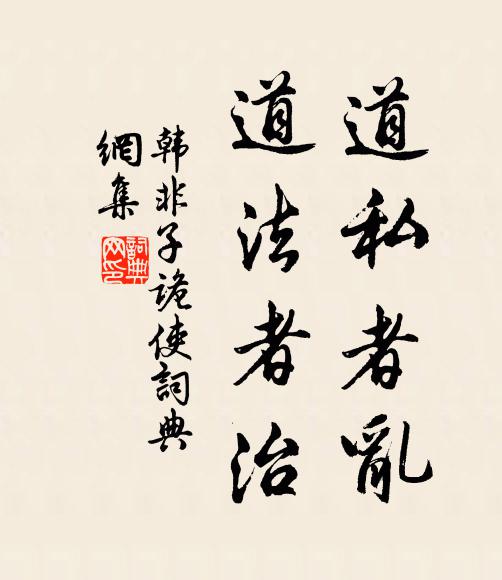 道私者亂
道法者治
韩非子诡使詞典
網集
詞典
网印